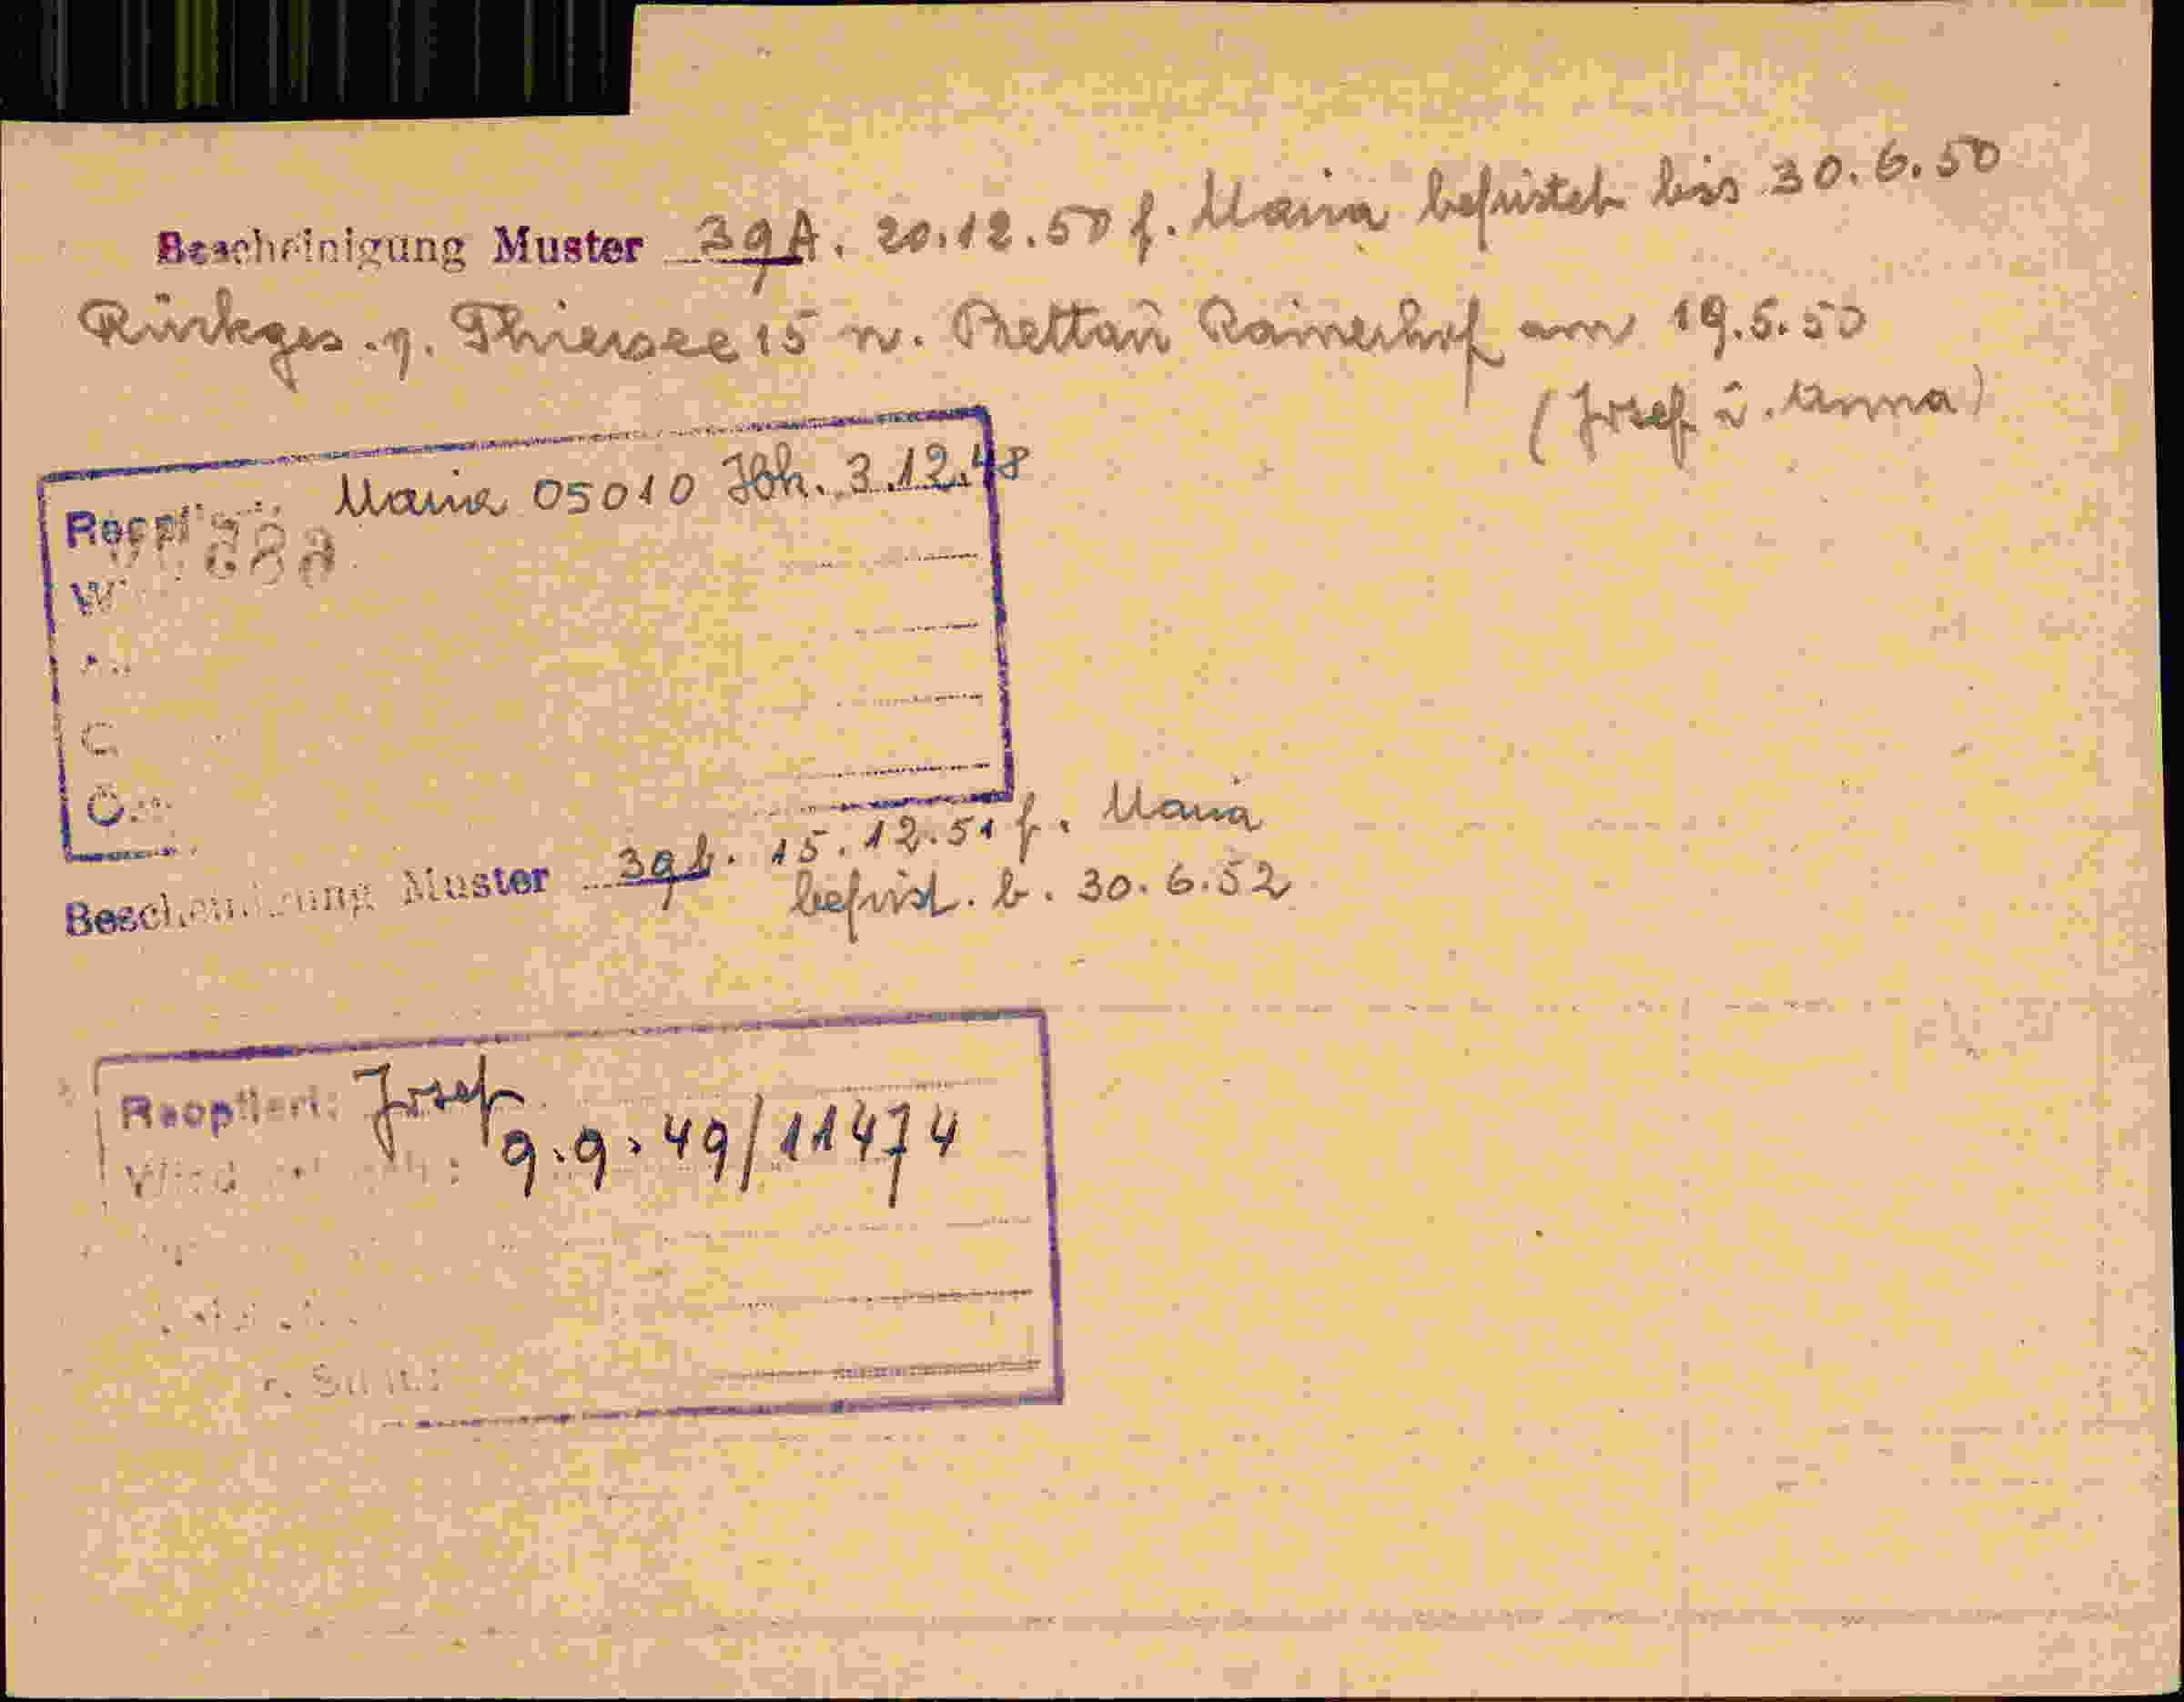 Bescheinigung Muster 39A. 20.12.50 f. Maria befristet bis 30.6.50
Rückges. v. Thiersee 15 n. Prettau Rainerhof am 19.5.50
(Josef u. Anna)
Maria 05010 Ibk. 3.12.48
Reoptiert:
Bescheinigung Muster 39b. 15.12.51 f. Maria
befrist. b. 30.6.52
Reoptiert: Josef
9.9.49/11474